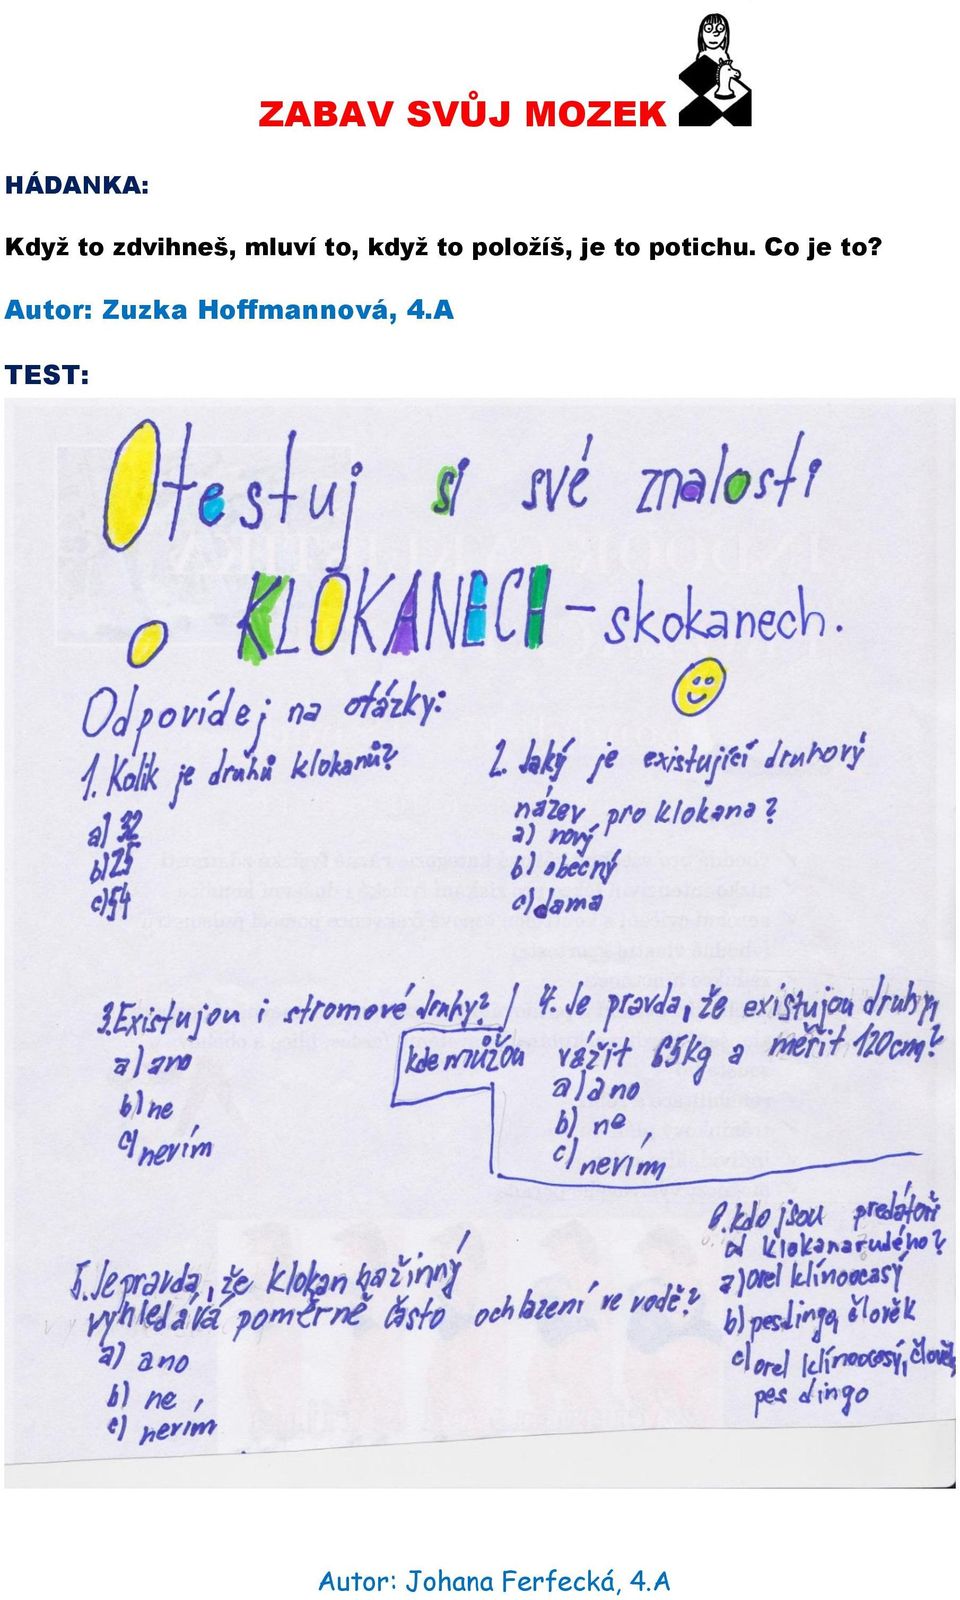 ZABAV SVŮJ MOZEK
HÁDANKA:
Když to zdvihneš, mluví to, když to položíš, je to potichu. Co je to?
Autor: Zuzka Hoffmannová, 4.A
TEST:
Otestuj si své znalosti
o KLOKANECH - skokanech.
Odpovídej na otázky:
1. Kolik je druhů klokanů?
a) 32
b) 25
c) 54
2. Jaký je existující druhový
název pro klokana?
a) nový
b) obecný
c) dama
3. Existujou i stromové druhy?
a) ano
b) ne
c) nevím
4. Je pravda, že existujou druhy,
kde můžou vážit 65kg a měřit 120cm?
a) ano
b) ne,
c) nevím
5. Je pravda, že klokan bažinný
vyhledává poměrně často ochlazení ve vodě?
a) ano
b) ne,
c) nevím
6. kdo jsou predátoři
od klokana rudého?
a) orel klínoocasý
b) pes dingo, člověk
c) orel klínoocasý, člověk,
pes dingo
Autor: Johana Ferfecká, 4.A